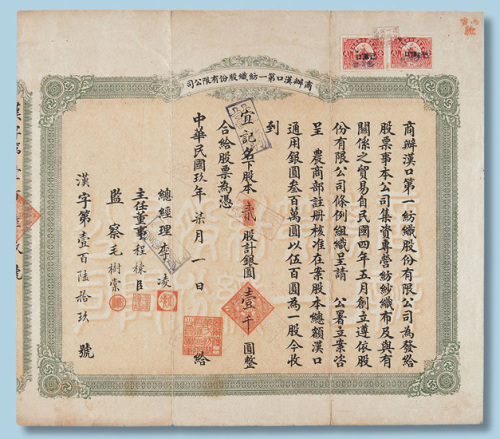 商辦漢口第一紡織股份有限公司
商辦漢口第一紡織股份有限公司為發給
股票事本公司集資專營紡紗織布及與有
關係之貿易自民國四年五月創立遵依股
份有限公司條例組織呈請 公署立案咨
呈 農商部註册核准在案股本總額漢口
通用銀圓叁百萬圓以伍百圓為一股今收
到
宜記名下股本貳股計銀圓壹千圓整
合給股票為憑
中華民國玖年柒月一日 給
總經理李凌
主任董事程棟臣
監察毛樹棠
漢字第壹百陸拾玖號